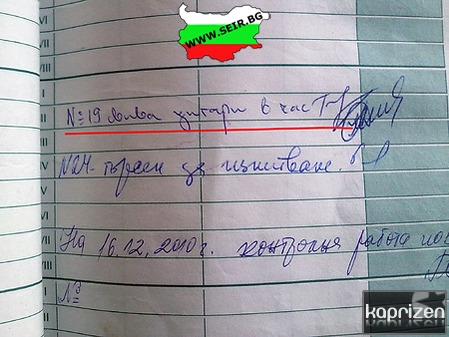 WWW.SEIR.BG
VI
VII
VIII
I
II №19 вика цигари в час
III
IV
V №24 търси за изпитване.
VI
VII На 16.12.2010г. контролна работа по
VIII
I №
II
kaprizen